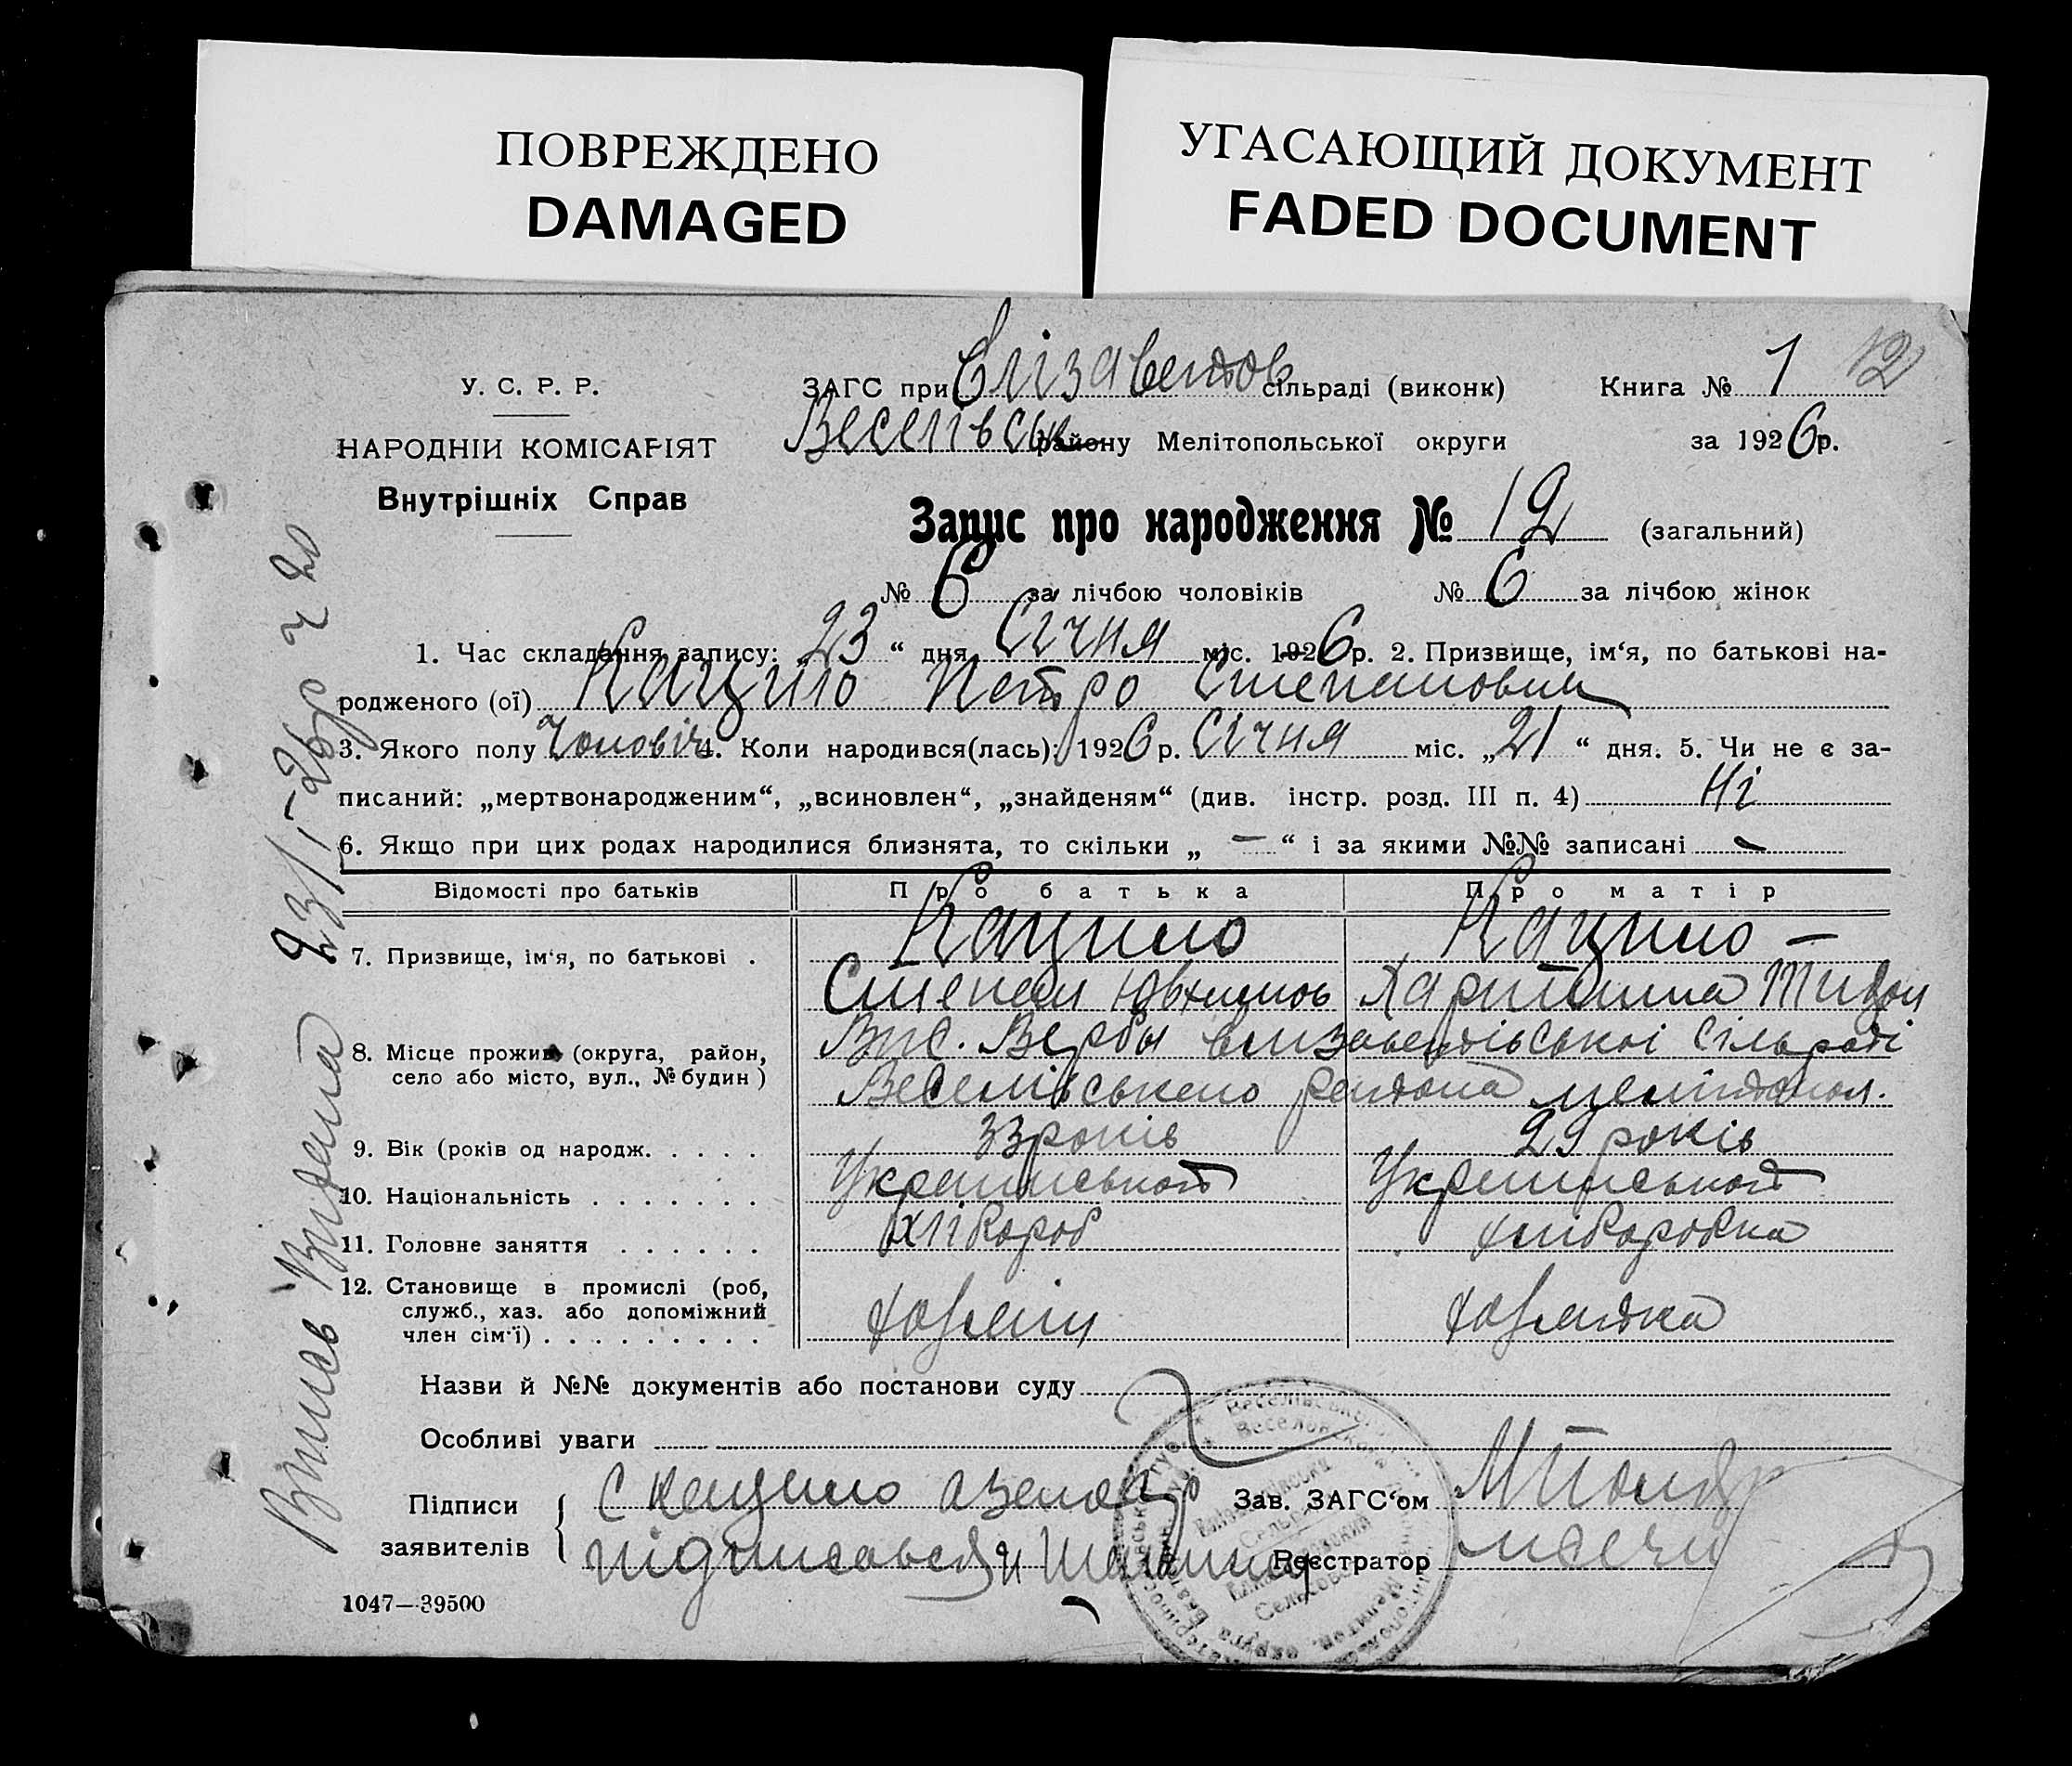 ПОВРЕЖДЕНО
DAMAGED
УГАСАЮЩИЙ ДОКУМЕНТ
FADED DOCUMENT
У. С. Р. Р.
НАРОДНІЙ КОМІСАРІЯТ
Внутрішніх Справ
ЗАГС при Єлізаветов сільраді (виконк)
Веселівськ району Мелітопольської округи
Книга № 1 12
за 1926 р.
Запис про народження № 12 (загальний)
№ 6 за лічбою чоловіків № 6 за лічбою жінок
1. Час складання запису: „23“ дня Січня міс. 1926 р. 2. Призвище, ім‘я, по батькові на-
родженого (ої) Кацило Петро Степанович
3. Якого полу Чоловіч 4. Коли народився(лась): 1926 р. Січня міс. „21“ дня. 5. Чи не є за-
писаний: „мертвонародженим“, „всиновлен“, „знайденям“ (див. інстр. розд. III п. 4) Ні
6. Якщо при цих родах народилися близнята, то скільки „ — “ і за якими №№ записані —
Відомості про батьків Про батька Про матір
7. Призвище, ім‘я, по батькові . Кацило Кацило —
Степан Харитина
8. Місце прожив (округа, район,
село або місто, вул., № будин) Вербы сільраді
Веселівського району
9. Вік (років од народж. . . . . 33 років 29 років
10. Національність . . . . . . . Українськой Українськой
11. Головне заняття . . . . . . хлібороб хліборобка
12. Становище в промислі (роб,
служб., хаз. або допоміжний
член сім‘ї) . . . . . . . . . хозяін хозяйка
Назви й №№ документів або постанови суду
Особливі уваги
Підписи
заявителів
С Кацило
підписавсь
Зав. ЗАГС‘ом
Реєстратор
1047—39500
Выпись Видана 23/I-26р